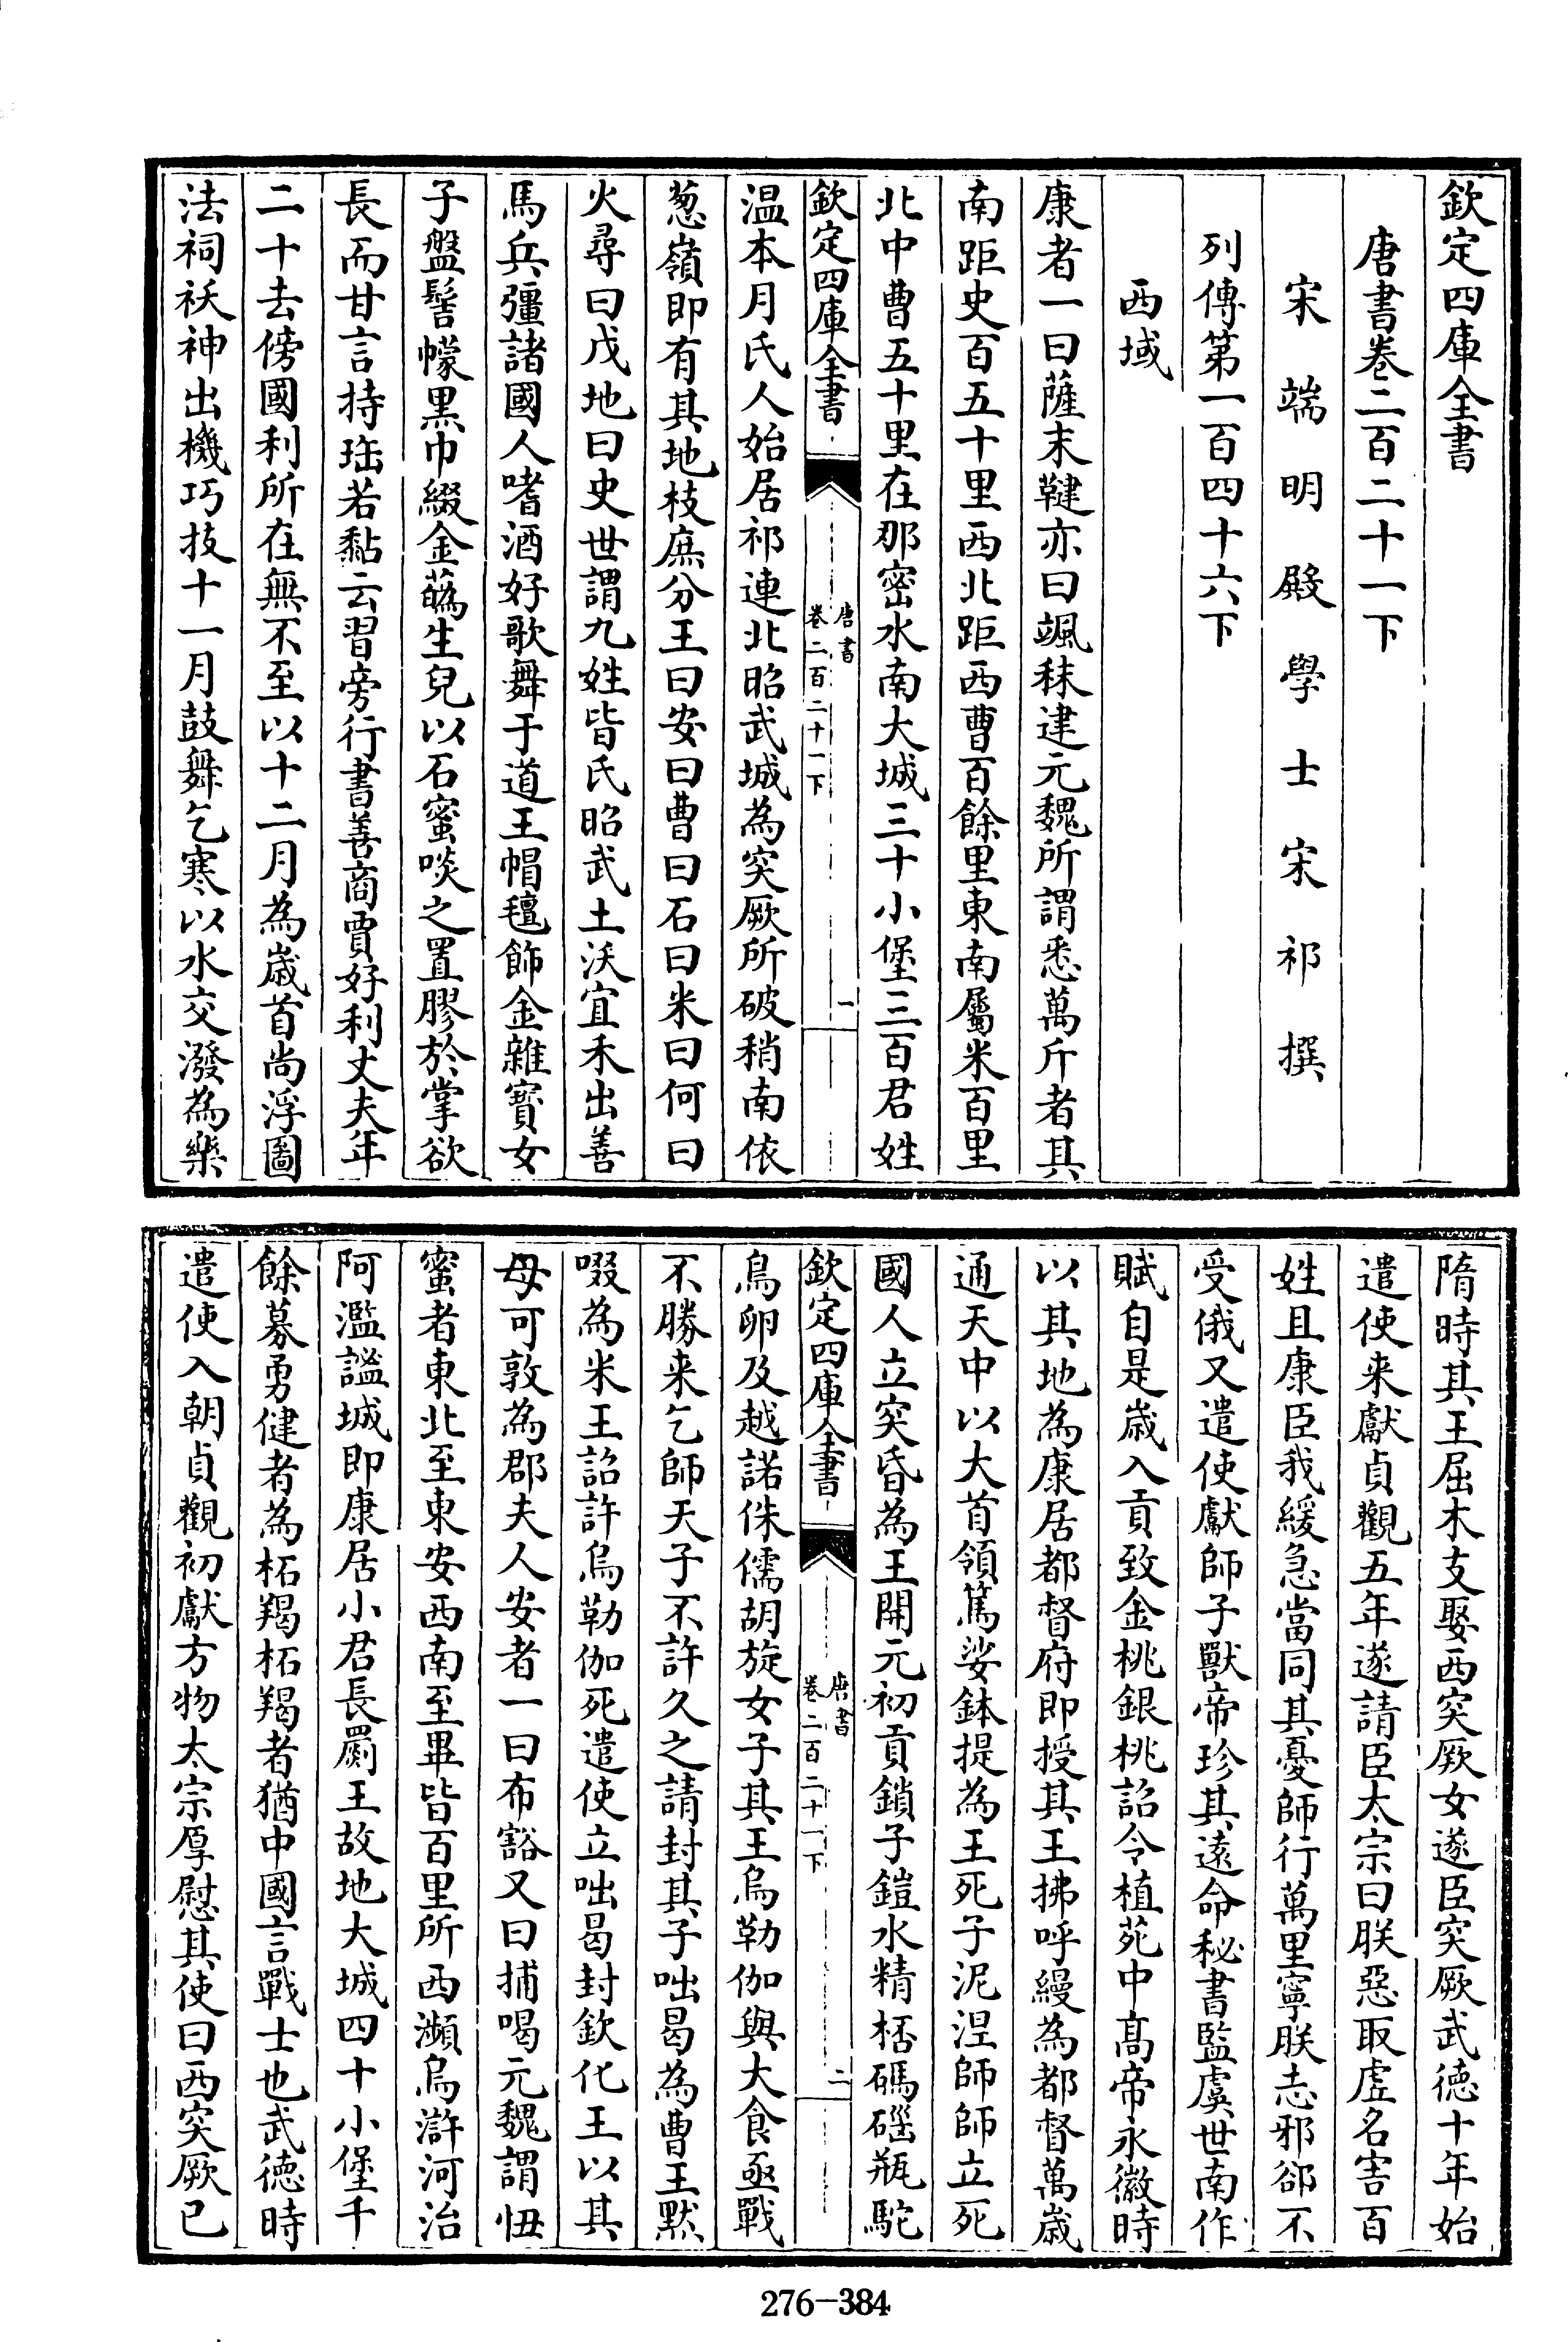 欽定四庫全書
唐書卷二百二十一下
宋端明殿學士宋祁撰
列傳第一百四十六下
西域
康者一曰薩末鞬亦曰颯秣建元魏所謂悉萬斤者其
南距史百五十里西北距西曹百餘里東南屬米百里
北中曹五十里在那密水南大城三十小堡三百君姓
欽定四庫全書
唐書
卷二百二十一下
一
温本月氏人始居祁連北昭武城為突厥所破稍南依
葱嶺即有其地枝庶分王曰安曰曹曰石曰米曰何曰
火尋曰戊地曰史世謂九姓皆氏昭武土沃宜禾出善
馬兵彊諸國人嗜酒好歌舞于道王帽氊飾金雜寶女
子盤髻幪黑巾綴金蘤生兒以石蜜啖之置膠於掌欲
長而甘言持珤若黏云習旁行書善商賈好利丈夫年
二十去傍國利所在無不至以十二月為歳首尚浮圖
法祠祅神出機巧技十一月鼓舞乞寒以水交潑為樂
隋時其王屈木支娶西突厥女遂臣突厥武徳十年始
遣使来獻貞觀五年遂請臣太宗曰朕惡取虛名害百
姓且康臣我緩急當同其憂師行萬里寧朕志邪郤不
受俄又遣使獻師子獸帝珍其遠命秘書監虞世南作
賦自是歳入貢致金桃銀桃詔令植苑中髙帝永徽時
以其地為康居都督府即授其王拂呼縵為都督萬歳
通天中以大首領篤娑鉢提為王死子泥涅師師立死
國人立突昏為王開元初貢鎖子鎧水精桮碼碯瓶駝
欽定四庫全書
唐書
卷二百二十一下
二
鳥卵及越諾侏儒胡旋女子其王烏勒伽與大食亟戰
不勝来乞師天子不許久之請封其子咄曷為曹王黙
啜為米王詔許烏勒伽死遣使立咄曷封欽化王以其
母可敦為郡夫人安者一曰布豁又曰捕喝元魏謂忸
蜜者東北至東安西南至畢皆百里所西瀕烏滸河治
阿濫謐城即康居小君長罽王故地大城四十小堡千
餘募勇健者為柘羯柘羯者猶中國言戰士也武徳時
遣使入朝貞觀初獻方物太宗厚慰其使曰西突厥已
276-384